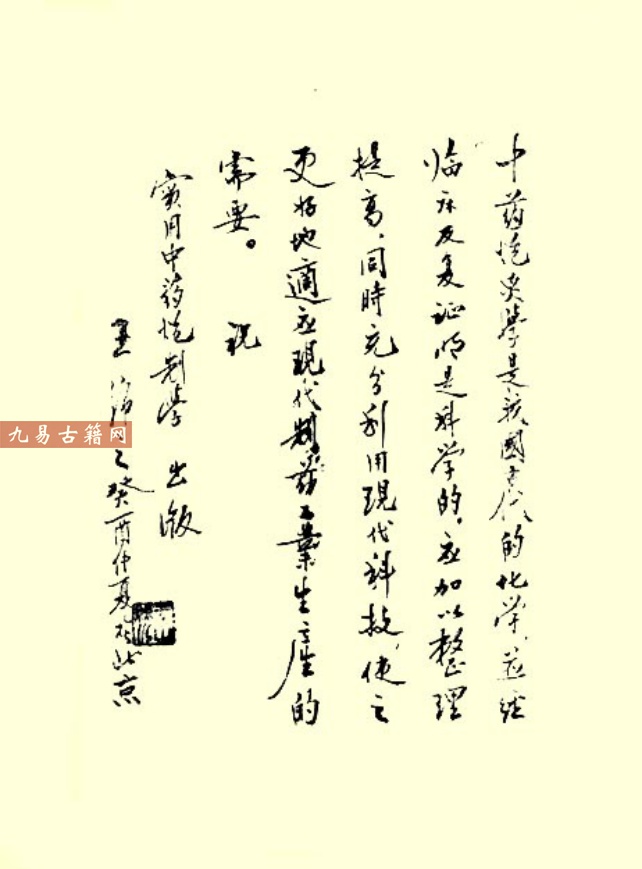 中药炮炙學是我國古代的化学，並经
临床反复证明是科学的。应加以整理
提高、同時充分利用现代科技，使之
更好地適应现代制药工業生産的
需要。 祝
實用中药炮制學 出版
癸酉仲夏於北京
九易古籍网